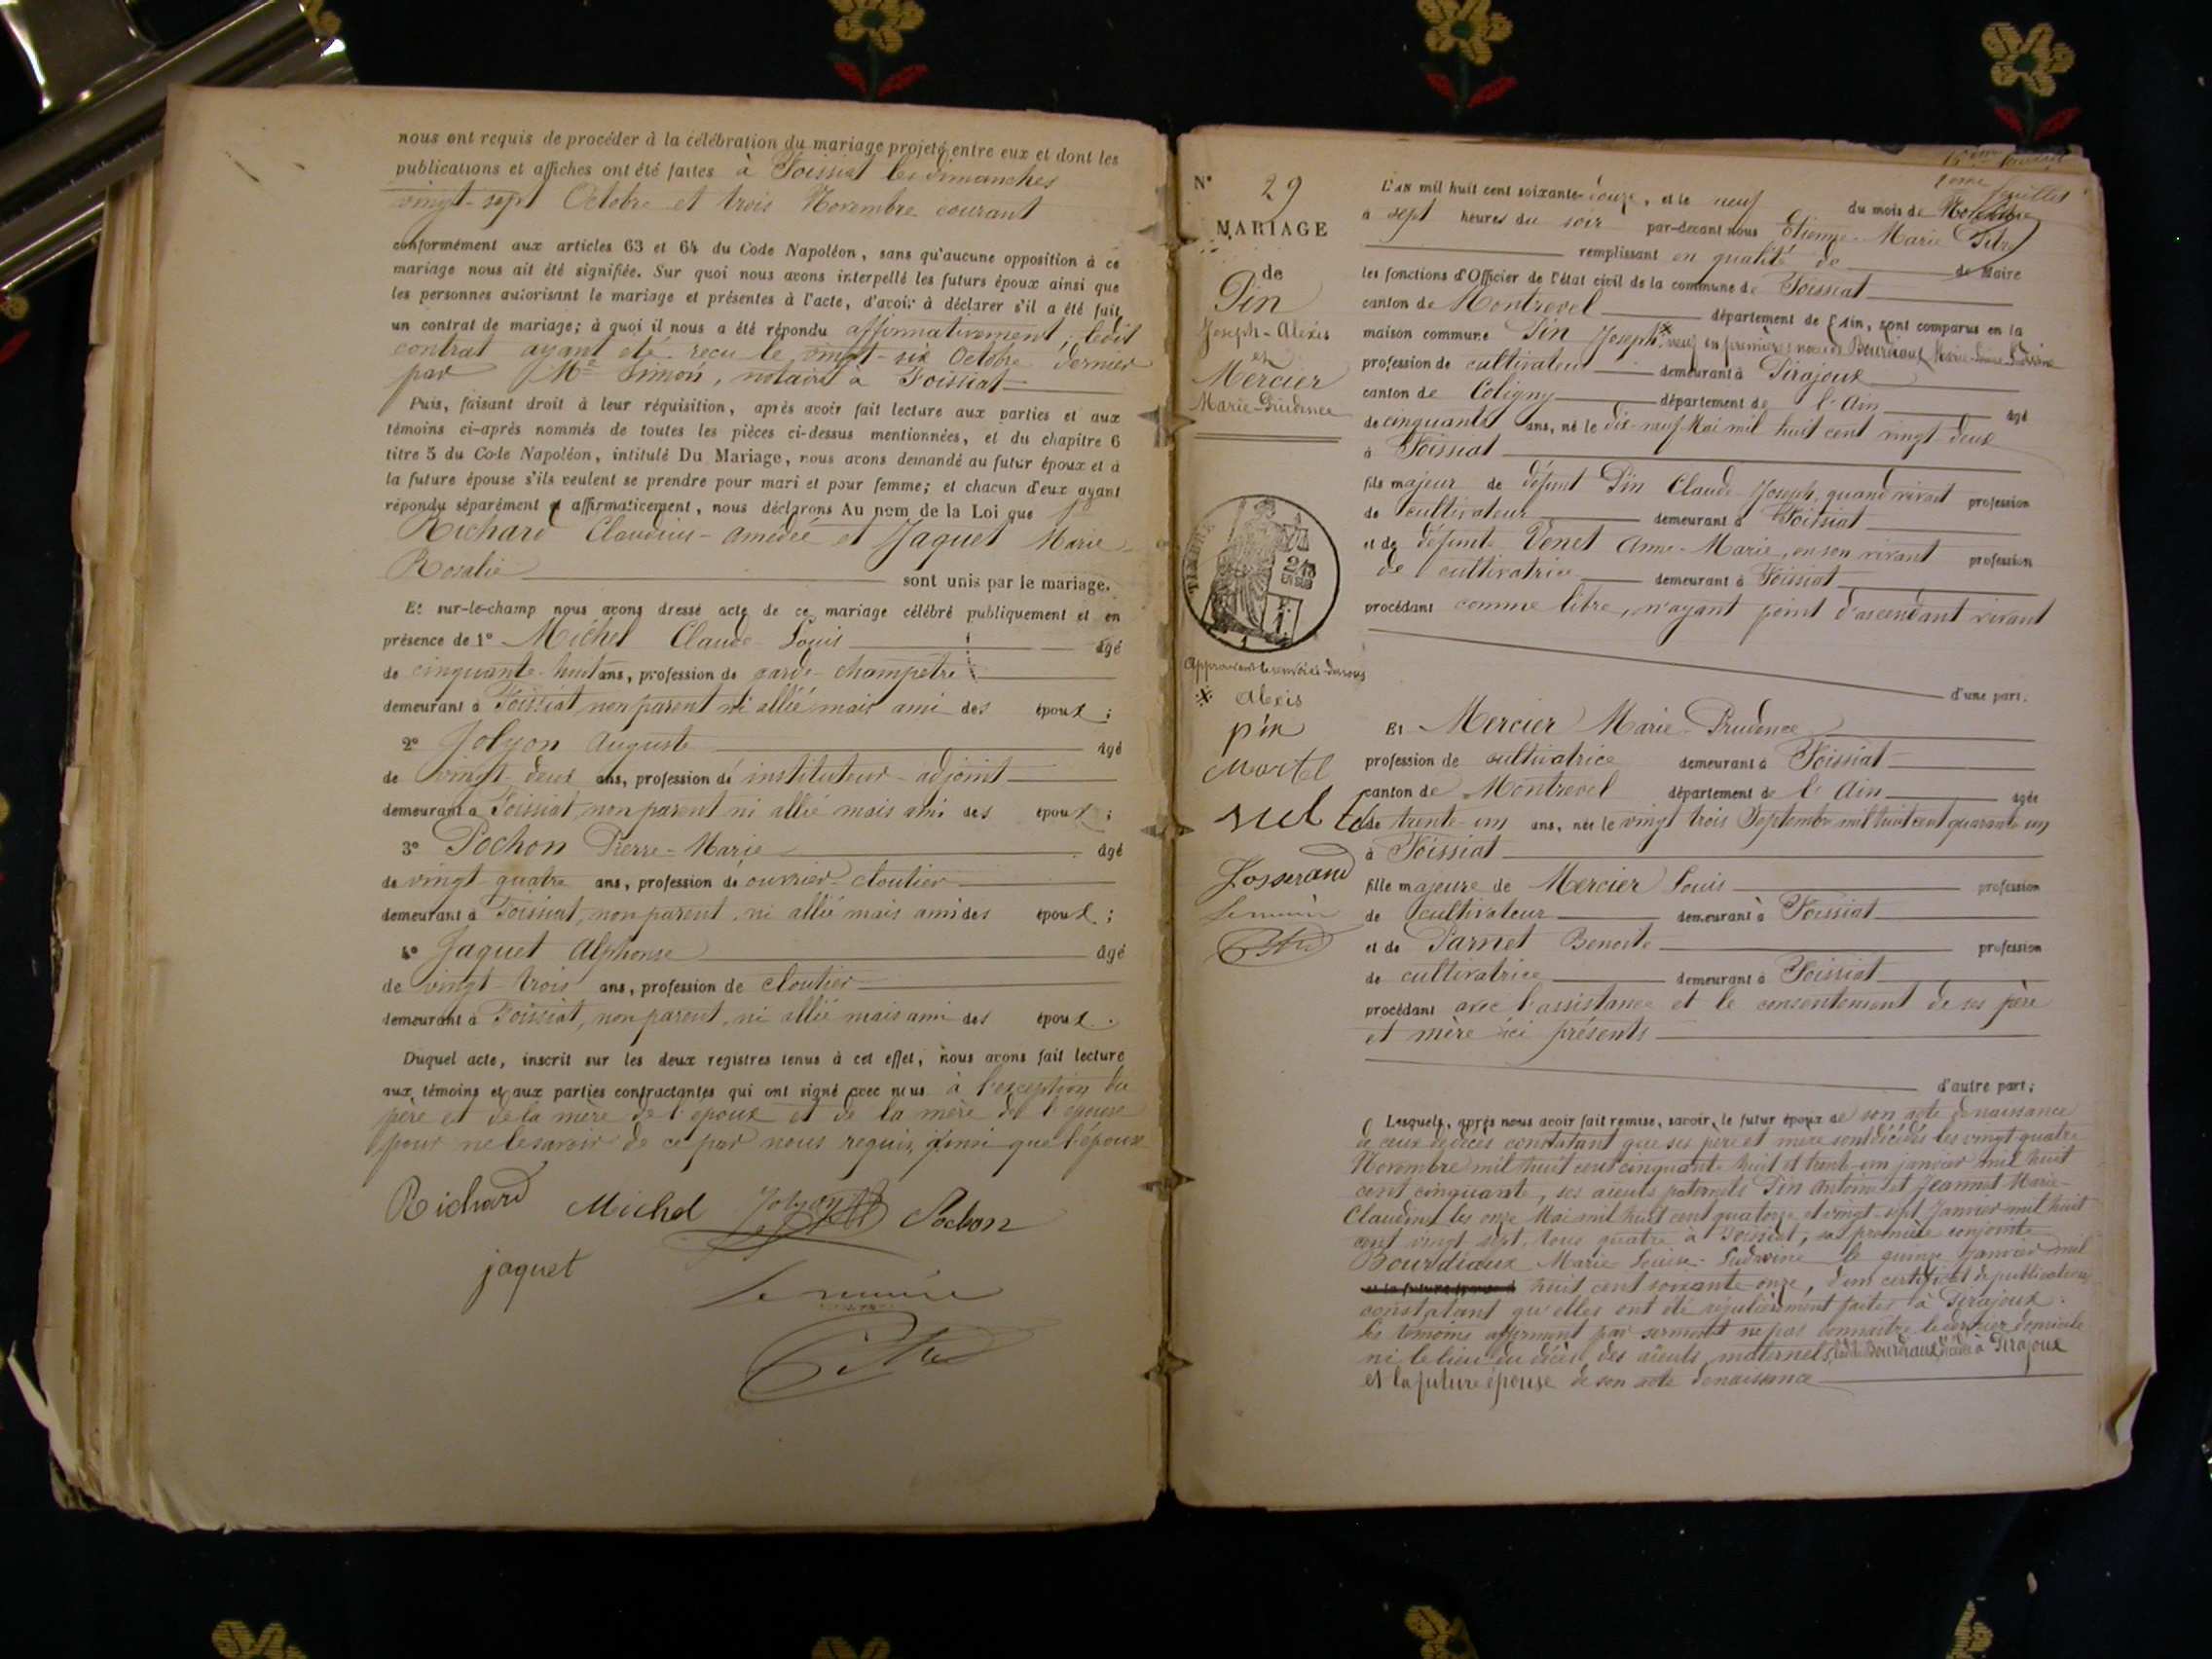 nous ont requis de procéder à la célébration du mariage projeté entre eux et dont les
publications et affiches ont été faites à Foissiat les dimanches
vingt-sept Octobre et trois Novembre courant
conformément aux articles 63 et 64 du Code Napoléon, sans qu'aucune opposition à ce
mariage nous ait été signifiée. Sur quoi nous avons interpellé les futurs époux ainsi que
les personnes autorisant le mariage et présentes à l'acte, d'avoir à déclarer s'il a été fait
un contrat de mariage; à quoi il nous a été répondu affirmativement, ledit
contrat ayant été reçu le vingt-six Octobre dernier
par Me Simon, notaire à Foissiat
Puis, faisant droit à leur réquisition, après avoir fait lecture aux parties et aux
témoins ci-après nommés de toutes les pièces ci-dessus mentionnées, et du chapitre 6
titre 5 du Code Napoléon, intitulé Du Mariage, nous avons demandé au futur époux et à
la future épouse s'ils veulent se prendre pour mari et pour femme; et chacun d'eux ayant
répondu séparément et affirmativement, nous déclarons Au nom de la Loi que
Richard Claudius-Amédée et Jaquet Marie
Rosalie sont unis par le mariage.
Et sur-le-champ nous avons dressé acte de ce mariage célébré publiquement et en
présence de 1° Michel Claude Louis âgé
de cinquante-huit ans, profession de garde-champêtre
demeurant à Foissiat non parent ni allié mais ami des époux;
2° Jolyon Auguste âgé
de vingt-deux ans, profession de instituteur-adjoint
demeurant à Foissiat, non parent ni allié mais ami des époux;
3° Pochon Pierre-Marie âgé
de vingt-quatre ans, profession de ouvrier-cloutier
demeurant à Foissiat, non parent, ni allié mais ami des époux;
4° Jaquet Alphonse âgé
de vingt-trois ans, profession de cloutier
demeurant à Foissiat, non parent, ni allié mais ami des époux.
Duquel acte, inscrit sur les deux registres tenus à cet effet, nous avons fait lecture
aux témoins et aux parties contractantes qui ont signé avec nous à l'exception du
père et de la mère de l'époux et de la mère de l'épouse
pour ne le savoir de ce par nous requis, ainsi que l'épouse
Richard Michel Jolyon Pochon
jaquet
Le maire
N° 29
MARIAGE
de
Pin
Joseph-Alexis
et
Mercier
Marie-Prudence
TIMBRE
Approuvant le renvoi ci-dessous
Alexis
pin
Martel
Josserand
Le maire
2eme feuillet
L'an mil huit cent soixante-douze, et le neuf du mois de Novembre
à sept heures du soir par-devant nous Etienne-Marie
remplissant en qualité de de Maire
les fonctions d'Officier de l'état civil de la commune de Foissiat
canton de Montrevel département de l'Ain, sont comparus en la
maison commune Pin Joseph veuf en premières noces de Bourdiaux Marie-Louise-Ludovine
profession de cultivateur demeurant à Pirajoux
canton de Coligny département de l'Ain âgé
de cinquante ans, né le dix-neuf Mai mil huit cent vingt-deux
à Foissiat
fils majeur de défunt Pin Claude-Joseph, quand vivait profession
de cultivateur demeurant à Foissiat
et de défunte Venet Anne-Marie, en son vivant profession
de cultivatrice demeurant à Foissiat
procédant comme libre, n'ayant point d'ascendant vivant
d'une part.
Et Mercier Marie Prudence
profession de cultivatrice demeurant à Foissiat
canton de Montrevel département de l'Ain âgée
de trente-un ans, née le vingt trois Septembre mil huit cent quarante-un
à Foissiat
fille majeure de Mercier Louis profession
de cultivateur demeurant à Foissiat
et de Parnet Benoite profession
de cultivatrice demeurant à Foissiat
procédant avec l'assistance et le consentement de ses père
et mère ici présents
d'autre part;
Lesquels, après nous avoir fait remise, savoir, le futur époux de son acte de naissance
de ceux de décès constatant que ses père et mère sont décédés les vingt-quatre
Novembre mil huit cent cinquante-huit et trente-un janvier mil huit
cent cinquante, ses aïeuls paternels Pin Antoine et Jeannet Marie-
Claudine les onze Mai mil huit cent quatorze et vingt-sept Janvier mil huit
cent vingt sept, tous quatre à Foissiat, sa première conjointe
Bourdiaux Marie Louise-Ludovine le quinze Janvier mil
huit cent soixante-onze, d'un certificat de publications
constatant qu'elles ont été régulièrement faites à Pirajoux.
Les témoins affirment par serment ne pas connaître le dernier domicile
ni le lieu du décès des aïeuls maternels, ladite Bourdiaux décédée à Pirajoux
et la future épouse de son acte de naissance